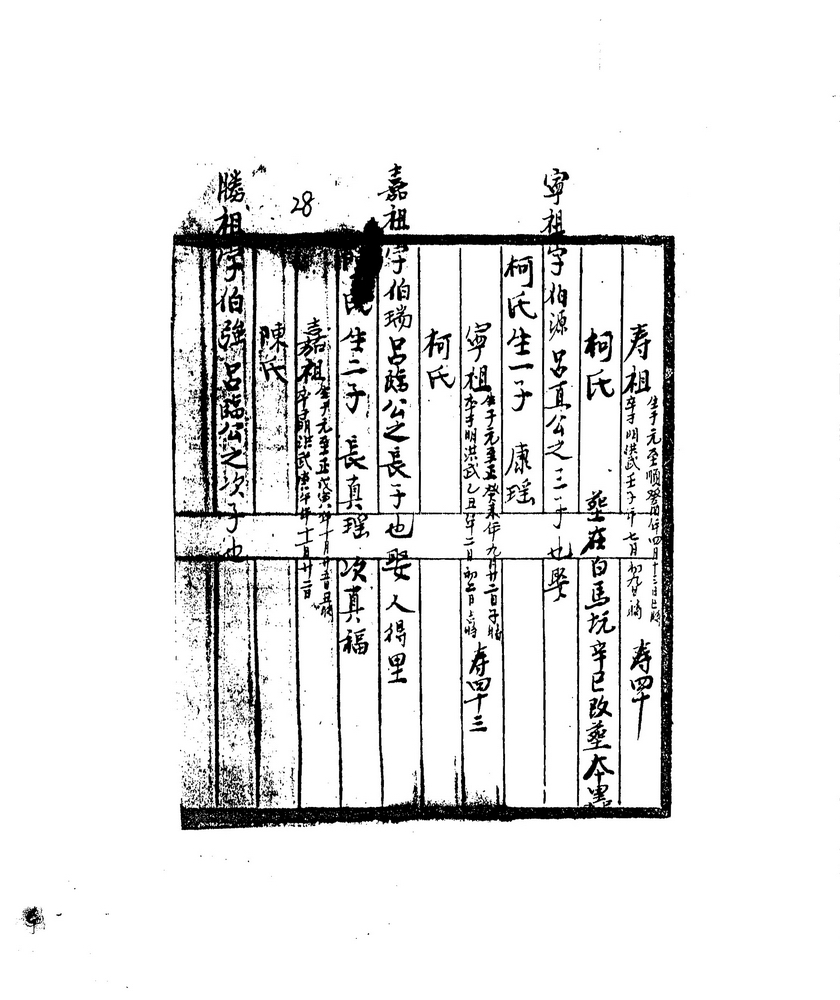 寿祖 生于元至順癸酉年四月十三日巳時 卒于明洪武壬子年七月初九日 時 寿四十
柯氏 塟在白馬坑辛巳改塟本里
寧祖字伯源 吕真公之三子也娶
柯氏生一子 康瑶
寧祖 生于元至正癸未年九月廿二日子時 卒于明洪武乙丑年二月初 日 時 寿四十三
柯氏
嘉祖字伯瑞吕臨公之長子也娶人得里
氏生二子 長真瑶 次真福
嘉祖 生于元至正戊寅年十一月廿五日丑時 卒明洪武庚午年十一月廿二日
陳氏
勝祖字伯强吕臨公之次子也
28